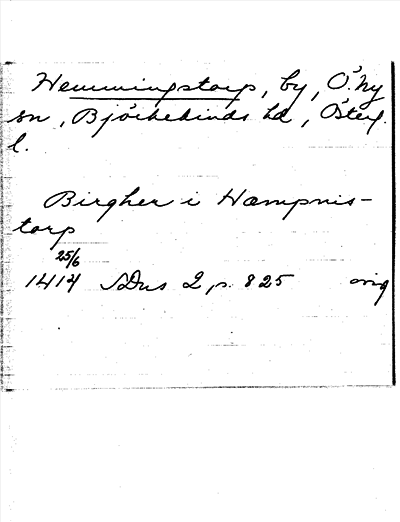 Hemmingstorp, by, Ö. Ny
sn, Björkekinds hd, Österg.
l.
Birgher i Hæmpnis-
torp
25/6
1414 SDns 2, p. 825 orig